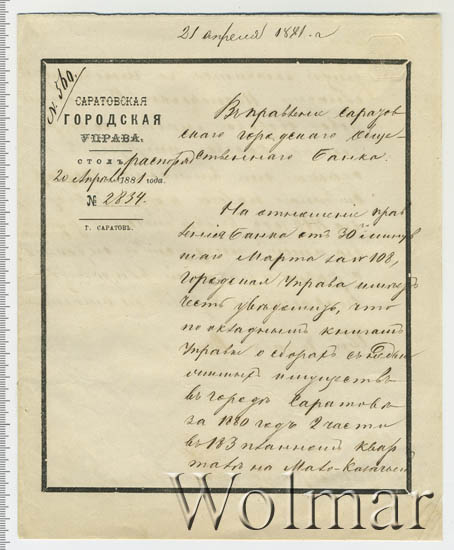 21 апреля 1881. г
№ 560.
САРАТОВСКАЯ
ГОРОДСКАЯ
УПРАВА.
СТОЛЪ распоряд
20 Апреля 1881 года.
№ 2834.
Г. САРАТОВЪ.
Въ правленіе Саратов
скаго городскаго обще
ственнаго Банка.
На отношеніе прав
ленія Банка отъ 30 минув
шаго Марта за № 108,
Городская Управа имеетъ
честь уведомить, что
по окладнымъ книгамъ
Управы о сборахъ съ недви
жимыхъ имуществъ
въ городе Саратове
за 1880 годъ 2 части
въ 183 планномъ квар
тале на Мало-Казачьей
Wolmar